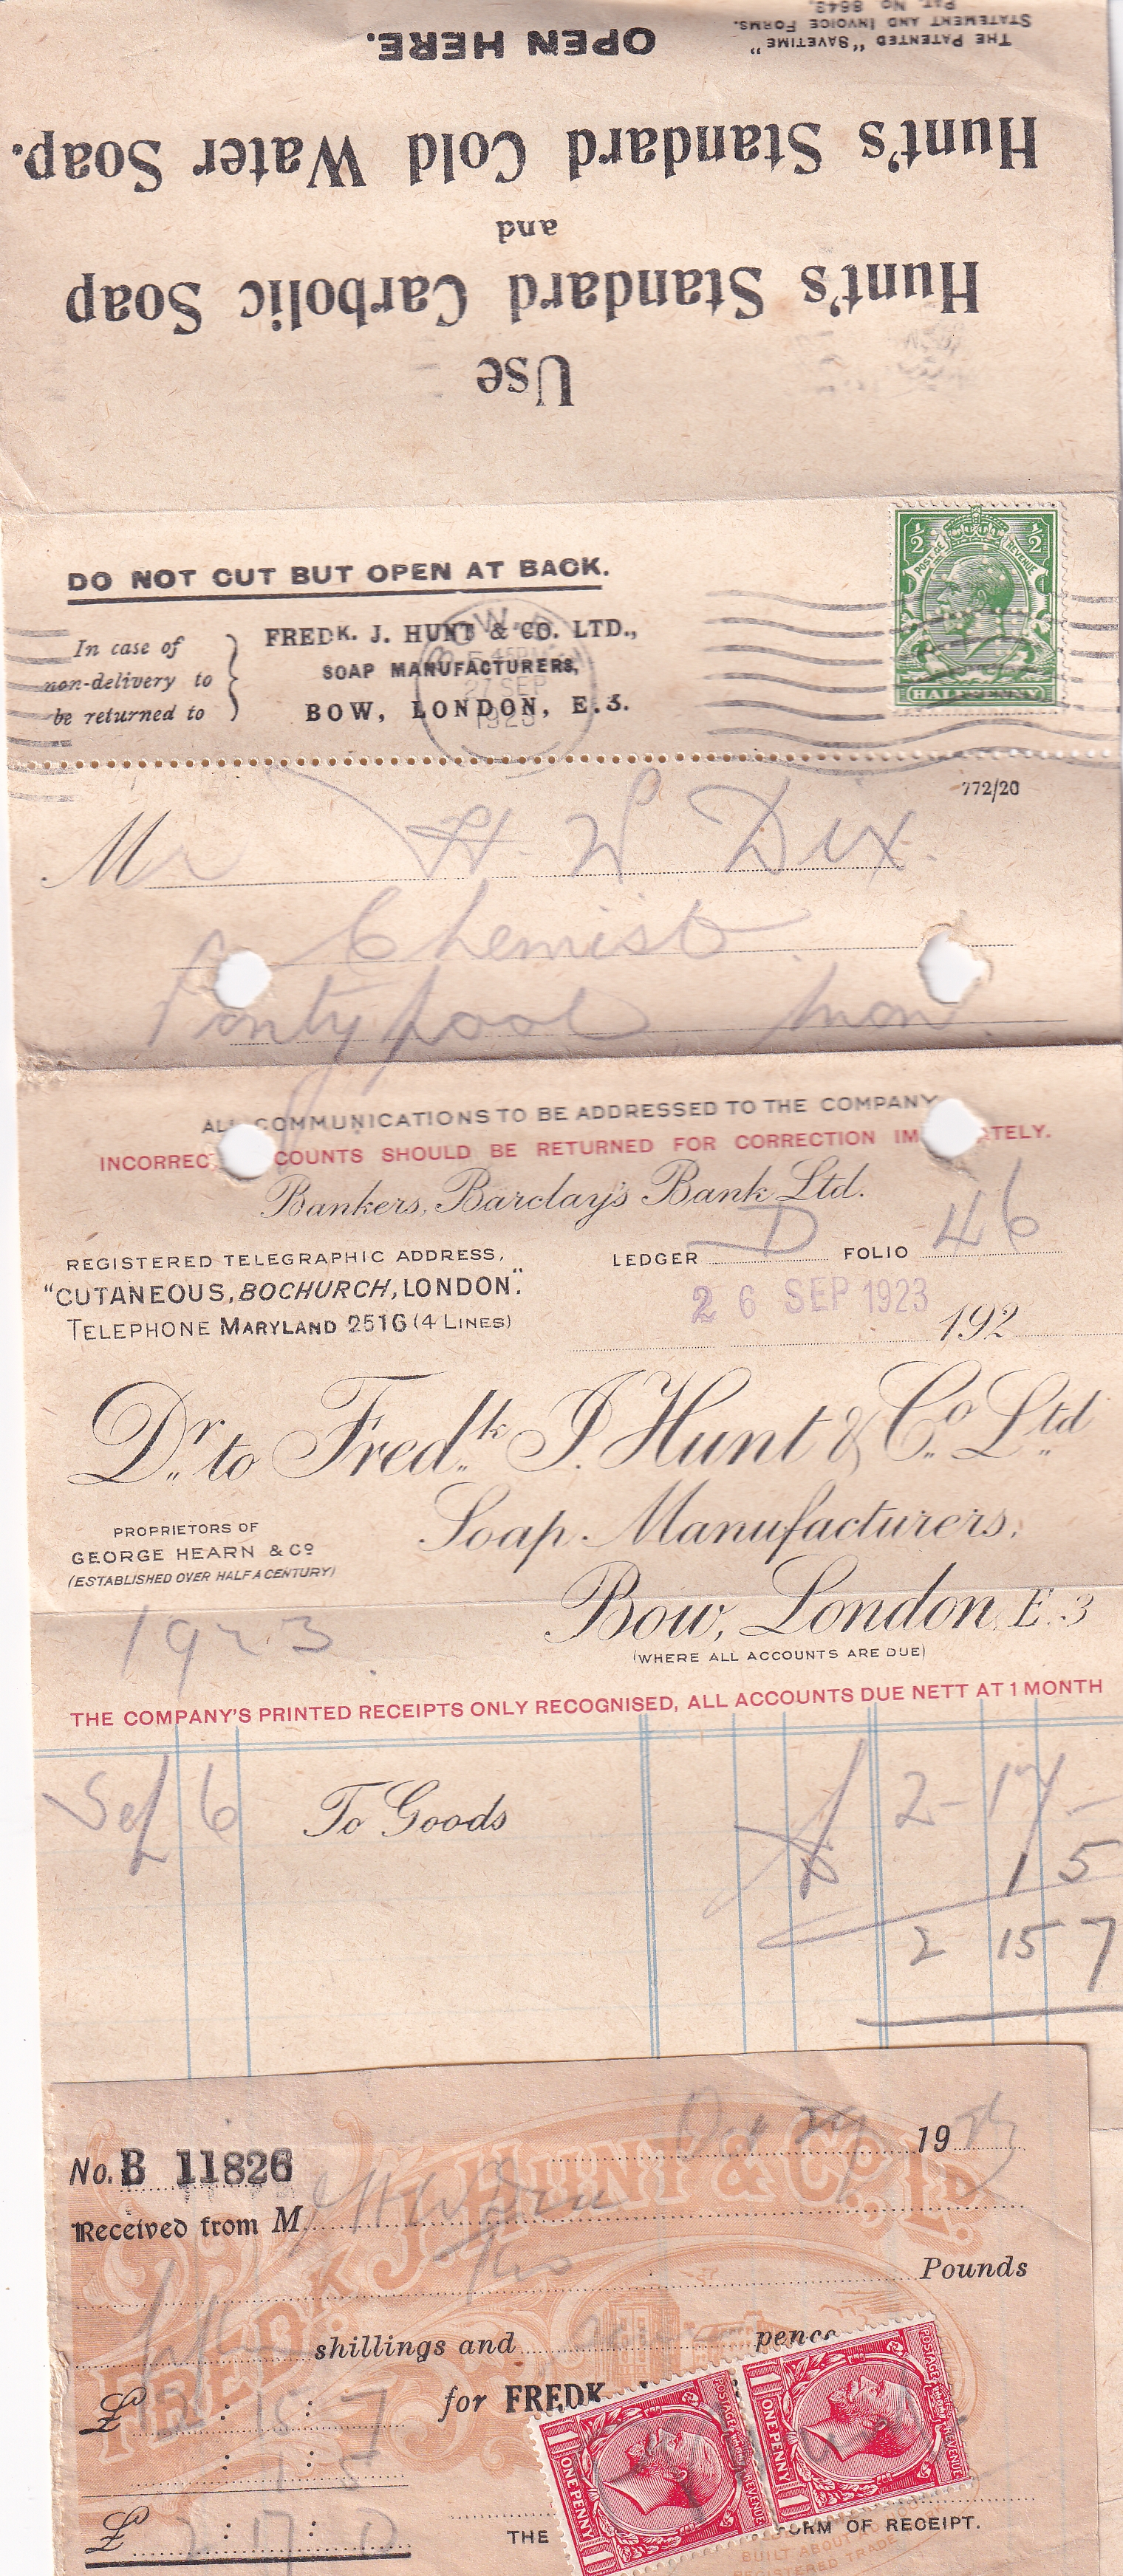 THE PATENTED "SAVETIME"
STATEMENT AND INVOICE FORMS.
PAT. NO 8643.
OPEN HERE.
Use
Hunt's Standard Carbolic Soap
and
Hunt's Standard Cold Water Soap.
DO NOT CUT BUT OPEN AT BACK.
In case of
non-delivery to
be returned to
FREDK. J. HUNT & CO. LTD.,
SOAP MANUFACTURERS,
BOW, LONDON, E.3.
27 SEP
1923
½ ½
POSTAGE REVENUE
HALFPENNY
772/20
Mr H. W Dix.
Chemist
Pontypool, Mon.
ALL COMMUNICATIONS TO BE ADDRESSED TO THE COMPANY
INCORREC COUNTS SHOULD BE RETURNED FOR CORRECTION IM TELY.
Bankers, Barclay's Bank Ltd.
REGISTERED TELEGRAPHIC ADDRESS,
"CUTANEOUS, BOCHURCH, LONDON."
TELEPHONE MARYLAND 2516 (4 LINES)
LEDGER D FOLIO 46
26 SEP 1923
192
Dr. to Fredk. J. Hunt & Co. Ltd
Soap Manufacturers,
PROPRIETORS OF
GEORGE HEARN & Co
(ESTABLISHED OVER HALF A CENTURY)
Bow, London, E.3
(WHERE ALL ACCOUNTS ARE DUE)
1923.
THE COMPANY'S PRINTED RECEIPTS ONLY RECOGNISED, ALL ACCOUNTS DUE NETT AT 1 MONTH
Sep 6 To Goods 2 - 17 -
1 5
2 15 7
FREDK J. HUNT & CO., LD.
Oct 29 1923
No. B 11826
Received from M
Two Pounds
shillings and pence
£ 2 : 15 : 7
for FREDK
: 1 : 5
£ 2 : 17 : 0
THE FORM OF RECEIPT.
BUILT ABOUT
REGISTERED TRADE
POSTAGE REVENUE
ONE PENNY
POSTAGE REVENUE
ONE PENNY